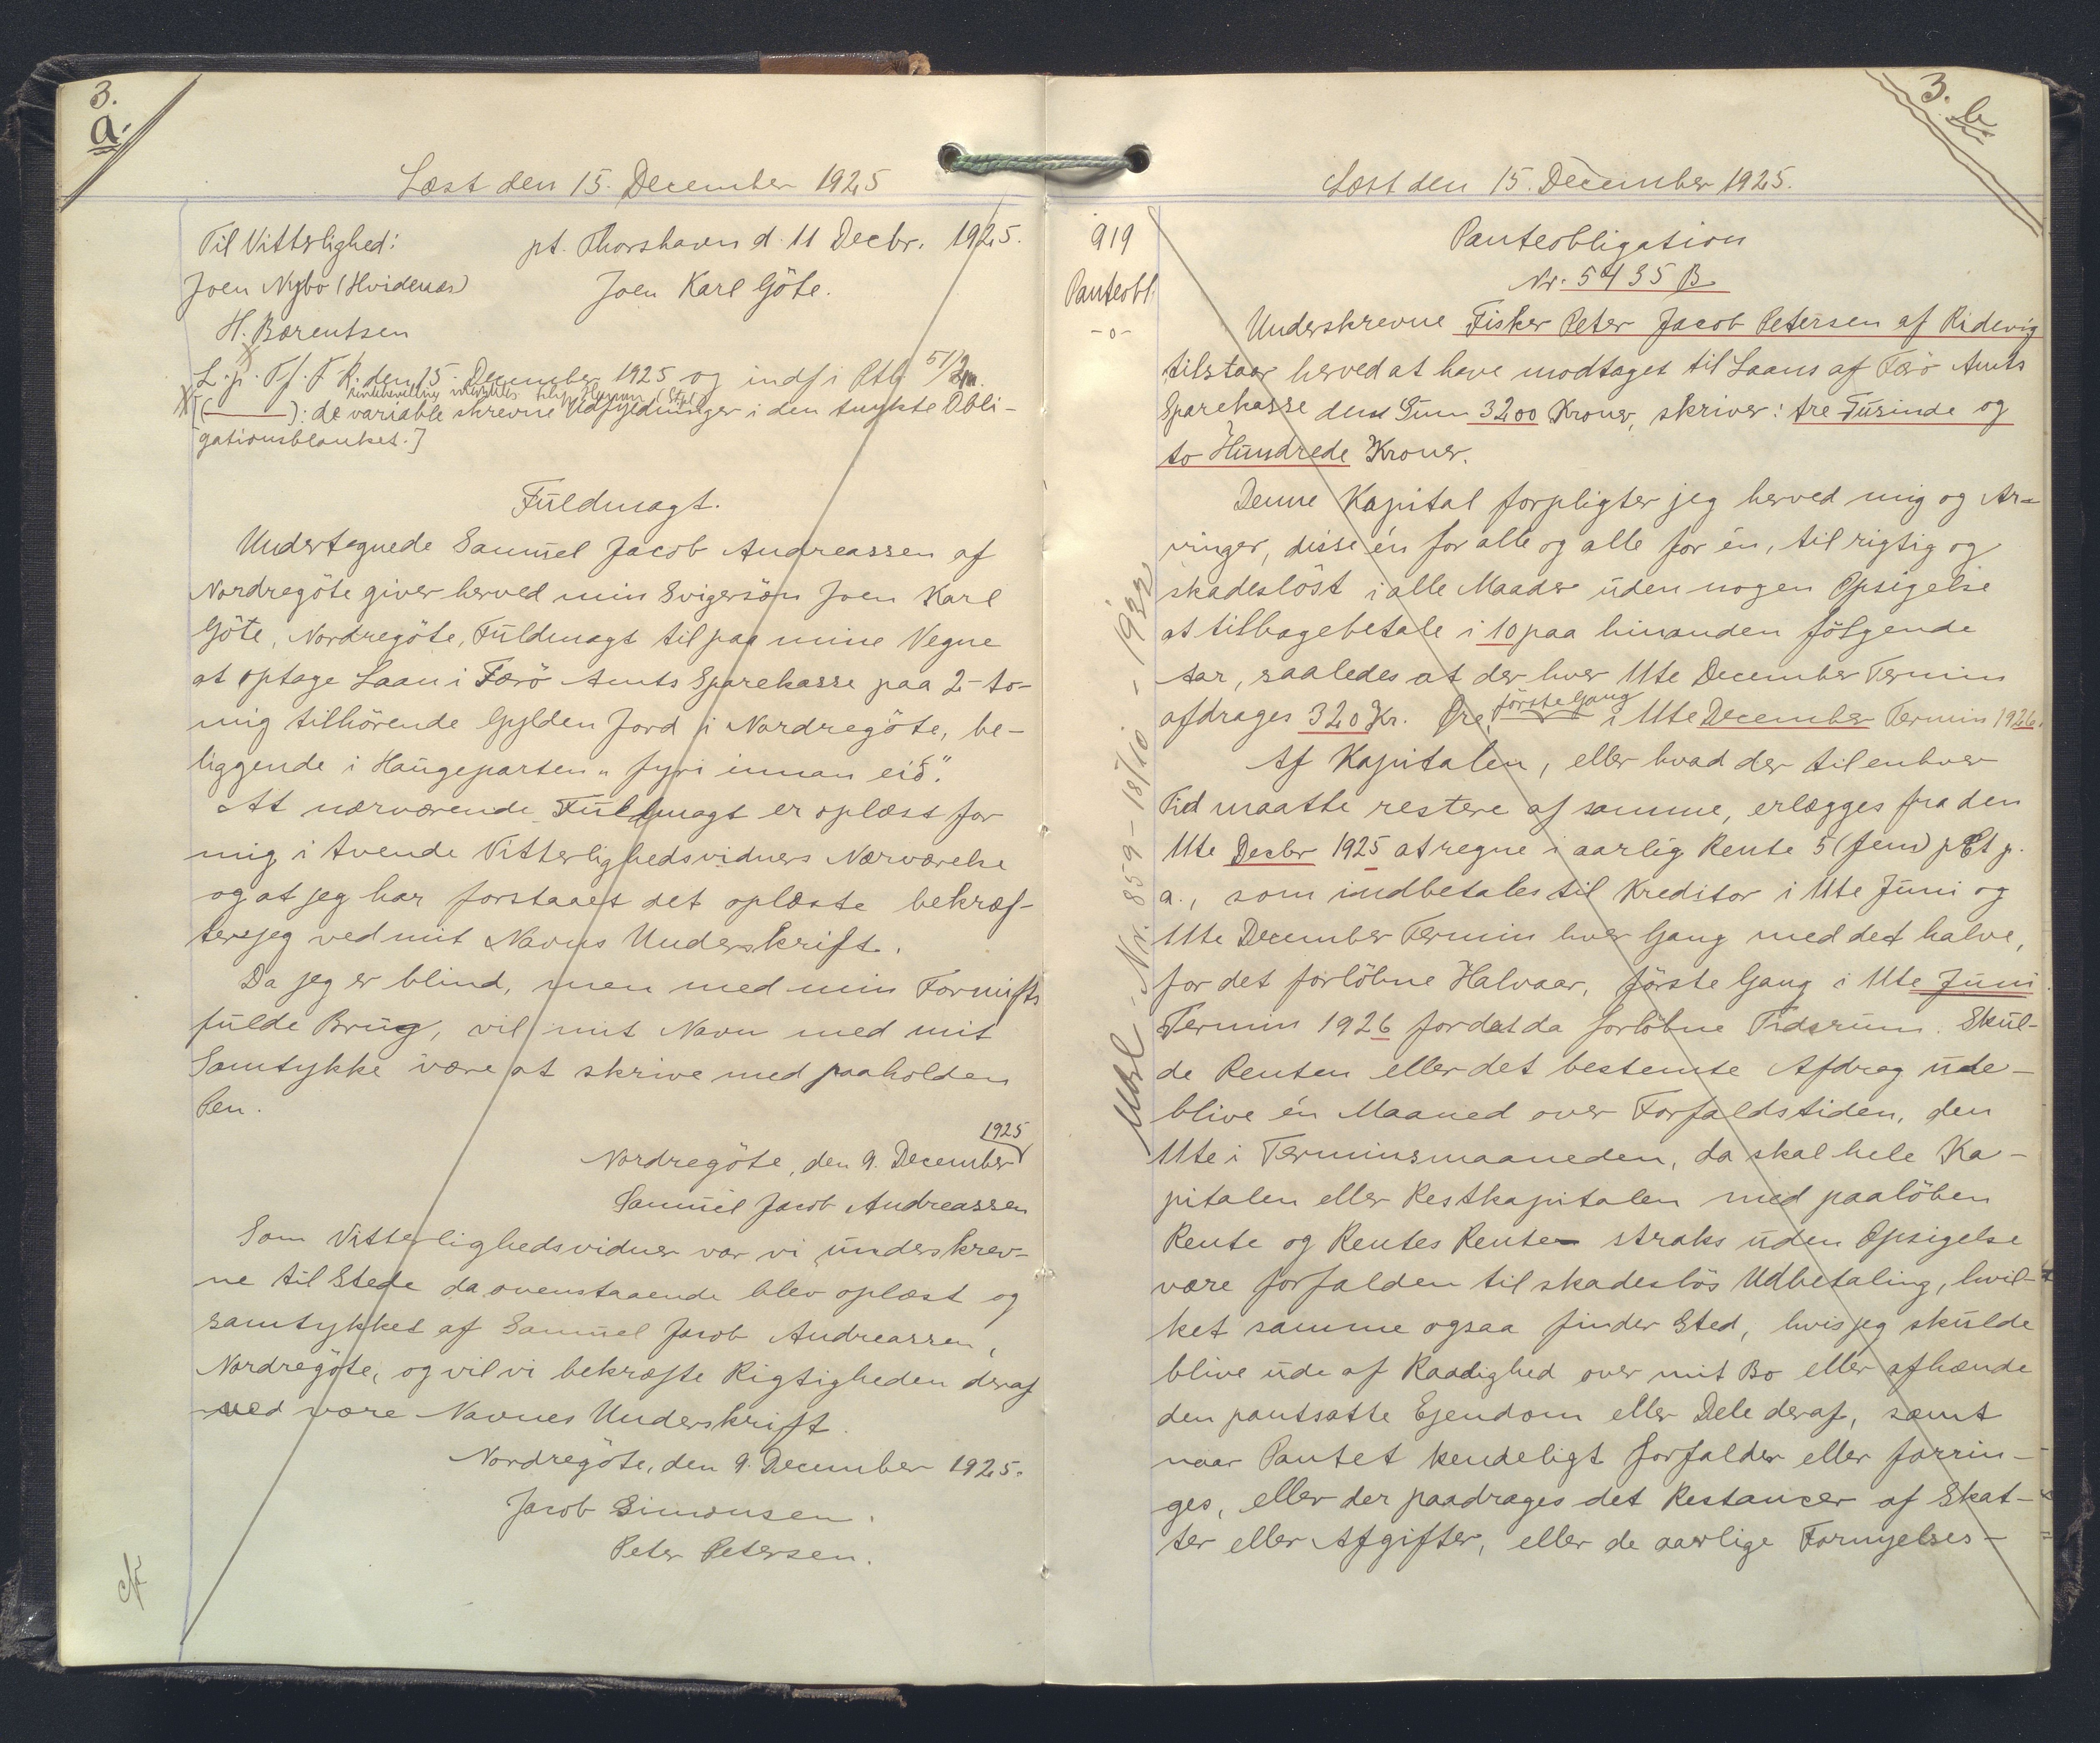 3.
a.
Læst den 15. December 1925
Til Vitterlighed: pt. Thorshavn d. 11 Decbr. 1925.
Joen Nybo (Hvidenæs) Joen Karl Göte.
H. Bærentsen
L. p. Tf. F. R. den 15. December 1925 og indf i Ptb
): de variable skrevne Udfyldninger i den trykte Obli-
gationsblanket.]
Fuldmagt.
Undertegnede Samuel Jacob Andreassen af
Nordregöte giver herved min Svigersön Joen Karl
Göte, Nordregöte, Fuldmagt til paa mine Vegne
at optage Laan i Færö Amts Sparekasse paa 2-to-
mig tilhörende Gylden Jord i Nordregöte, be-
liggende i Haugeparten „fyri innan eið".
At nærværende Fuldmagt er oplæst for
mig i tvende Vitterlighedsvidners Nærværelse
og at jeg har forstaaet det oplæste bekræf-
ter jeg ved mit Navns Underskrift.
Da jeg er blind, men med min Fornufts
fulde Brug, vil mit Navn med mit
Samtykke være at skrive med paaholden
Pen.
1925
Nordregöte, den 9. December
Samuel Jacob Andreassen
Som Vitterlighedsvidner var vi underskrev-
ne til Stede da ovenstaaende blev oplæst og
samtykket af Samuel Jacob Andreassen,
Nordregöte, og vil vi bekræfte Rigtigheden deraf
ved vore Navnes Underskrift.
Nordregöte, den 9. December 1925.
Jacob Simonsen.
Peter Petersen.
3. b
Læst den 15. December 1925.
919
Panteobl.
-o-
Panteobligation
Nr. 5435 B
Underskrevne Fisker Peter Jacob Petersen af Ridevig
tilstaar herved at have modtaget til Laans af Færö Amts
Sparekasse den Sum 3200 Kroner, skriver: tre Tusinde og
to Hundrede Kroner.
Denne Kapital forpligter jeg herved mig og Ar-
vinger, disse én for alle og alle for én, til rigtig og
skadeslöst i alle Maader uden nogen Opsigelse
at tilbagebetale i 10 paa hinanden fölgende
Aar, saaledes at der hver 11te December Termin
afdrages 320 Kr. Øre, förste Gang i 11te December Termin 1926.
Af Kapitalen, eller hvad der til enhver
Tid maatte restere af samme, erlægges fra den
11te Decbr 1925 at regne i aarlig Rente 5 (fem) pCt p.
a., som indbetales til Kreditor i 11te Juni og
11te December Termin hver Gang med det halve,
for det forlöbne Halvaar, förste Gang i 11te Juni
Termin 1926 for det da forlöbne Tidsrum. Skul-
de Renten eller det bestemte Afdrag ude-
blive én Maaned over Forfaldstiden, den
11te i Terminsmaaneden, da skal hele Ka-
pitalen eller Restkapitalen med paalöben
Rente og Rentes Rente straks uden Opsigelse
være forfalden til skadeslös Udbetaling, hvil-
ket samme ogsaa finder Sted, hvis jeg skulde
blive ude af Raadighed over mit Bo eller afhænde
den pantsatte Ejendom eller Dele deraf, samt
naar Pantet kendeligt forfalder eller forrin-
ges, eller der paadrages det Restancer af Skat-
ter eller Afgifter, eller de aarlige Fornyelses-
Udsl. Nr. 859 - 18/10 - 1932